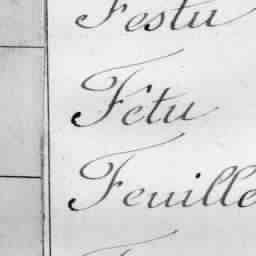 Festu
Fétu
Feuille